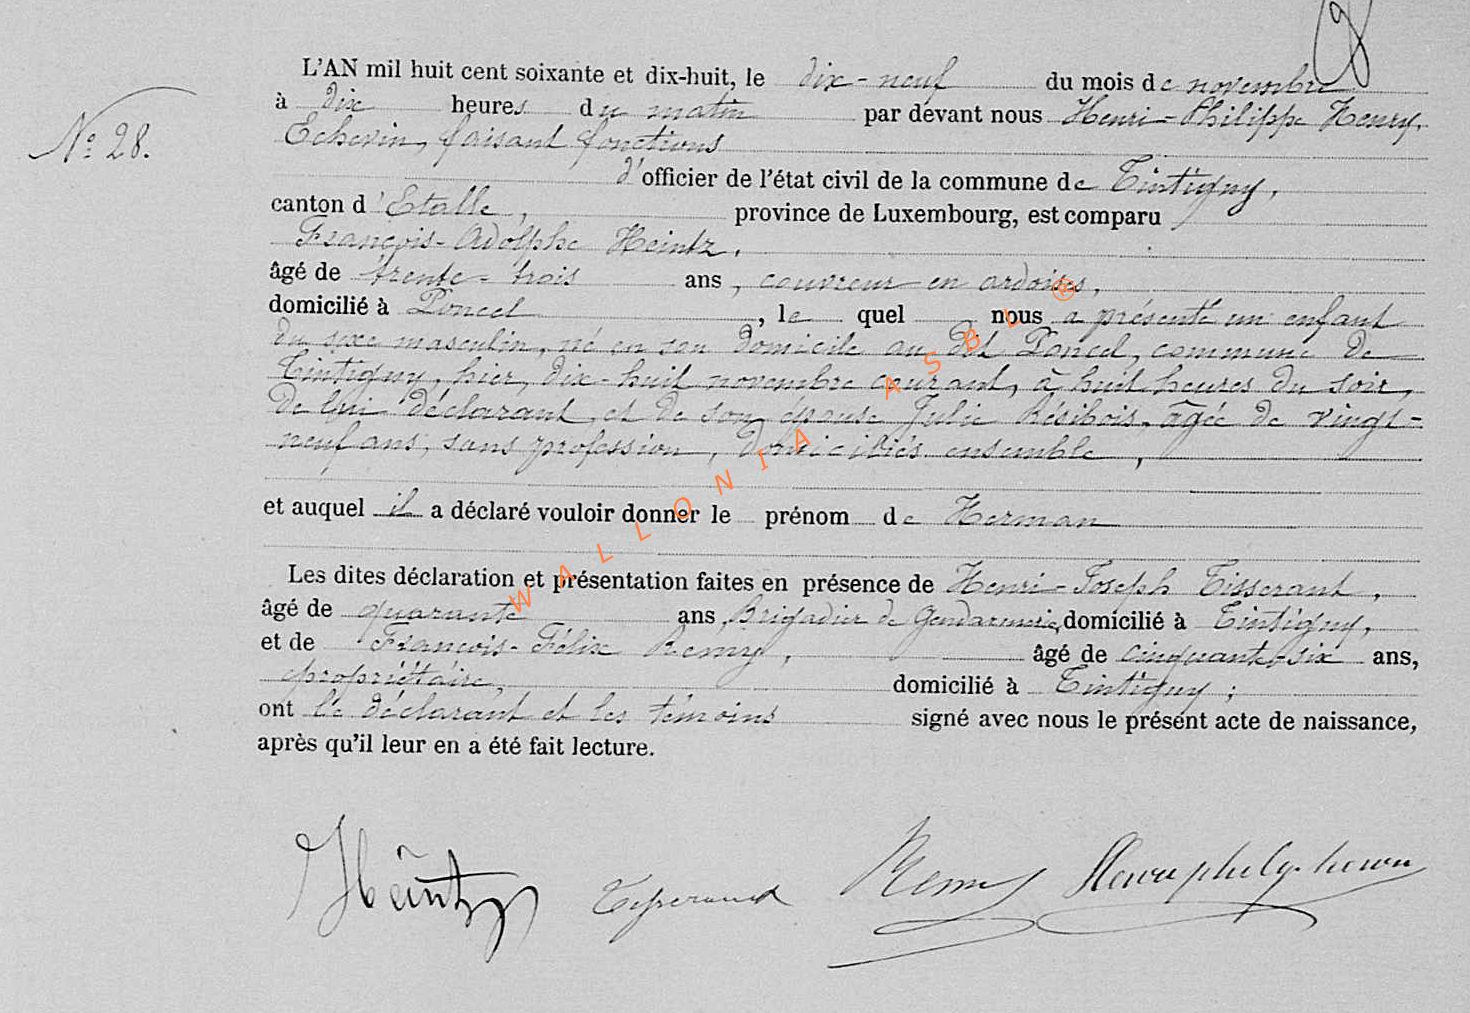 L'AN mil huit cent soixante et dix-huit, le dix-neuf du mois de novembre
à dix heures du matin par devant nous Henri-Philippe Henry,
N° 28.
Echevin, faisant fonctions
d'officier de l'état civil de la commune de Tintigny,
canton d'Etalle, province de Luxembourg, est comparu
François-Adolphe Heintz,
âgé de trente-trois ans, couvreur en ardoises,
domicilié à Poncel, le quel nous a présenté un enfant
du sexe masculin, né en son domicile au dit Poncel, commune de
Tintigny, hier, dix-huit novembre courant, à huit heures du soir,
de lui déclarant, et de son épouse Julie Résibois, âgée de vingt-
neuf ans, sans profession, domiciliés ensemble,
et auquel il a déclaré vouloir donner le prénom de Herman
Les dites déclaration et présentation faites en présence de Henri-Joseph Tisserant,
âgé de quarante ans, Brigadier de Gendarmerie, domicilié à Tintigny,
et de François-Félix Remy, âgé de cinquante-six ans,
propriétaire, domicilié à Tintigny;
ont le déclarant et les témoins signé avec nous le présent acte de naissance,
après qu'il leur en a été fait lecture.
WALLONIA ASBL ®
Heintz Remy